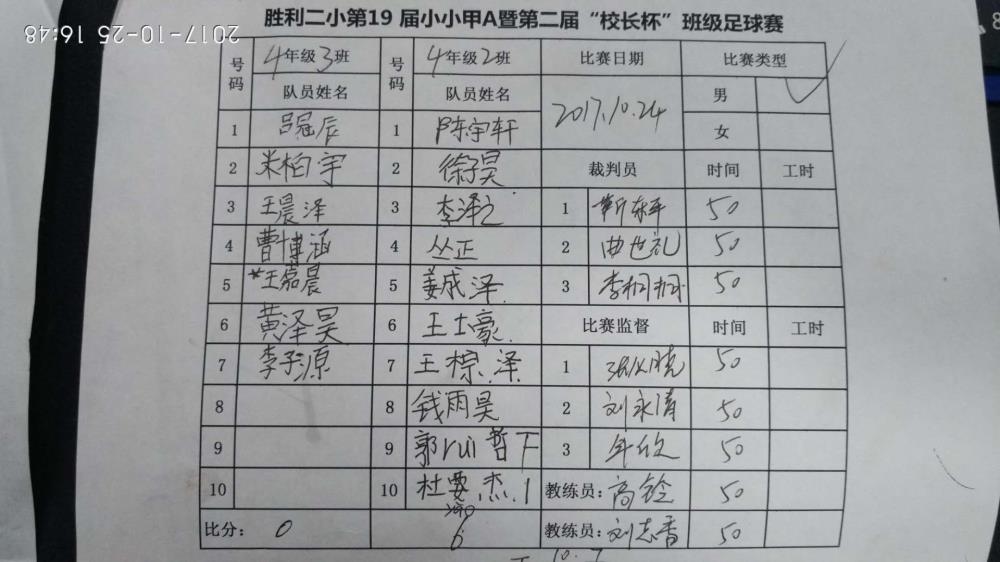 2017-10-25 16:48
胜利二小第19 届小小甲A暨第二届“校长杯”班级足球赛
号码 4年级3班 号码 4年级2班 比赛日期 比赛类型
队员姓名 队员姓名 2017.10.24 男 ✓
1 吕冠辰 1 陈宇轩 女
2 米柏宇 2 徐子昊 裁判员 时间 工时
3 王晨泽 3 李泽之 1 靳东平 50
4 曹博涵 4 丛正 2 曲世礼 50
5 *王磊晨 5 姜成泽 3 李桐桐 50
6 黄泽昊 6 王士豪 比赛监督 时间 工时
7 李子源 7 王棕泽 1 50
8 8 钱雨昊 2 刘永涛 50
9 9 郭rui哲下 3 50
10 10 杜要杰1 教练员:高铃 50
比分: 0 6 教练员:刘志香 50